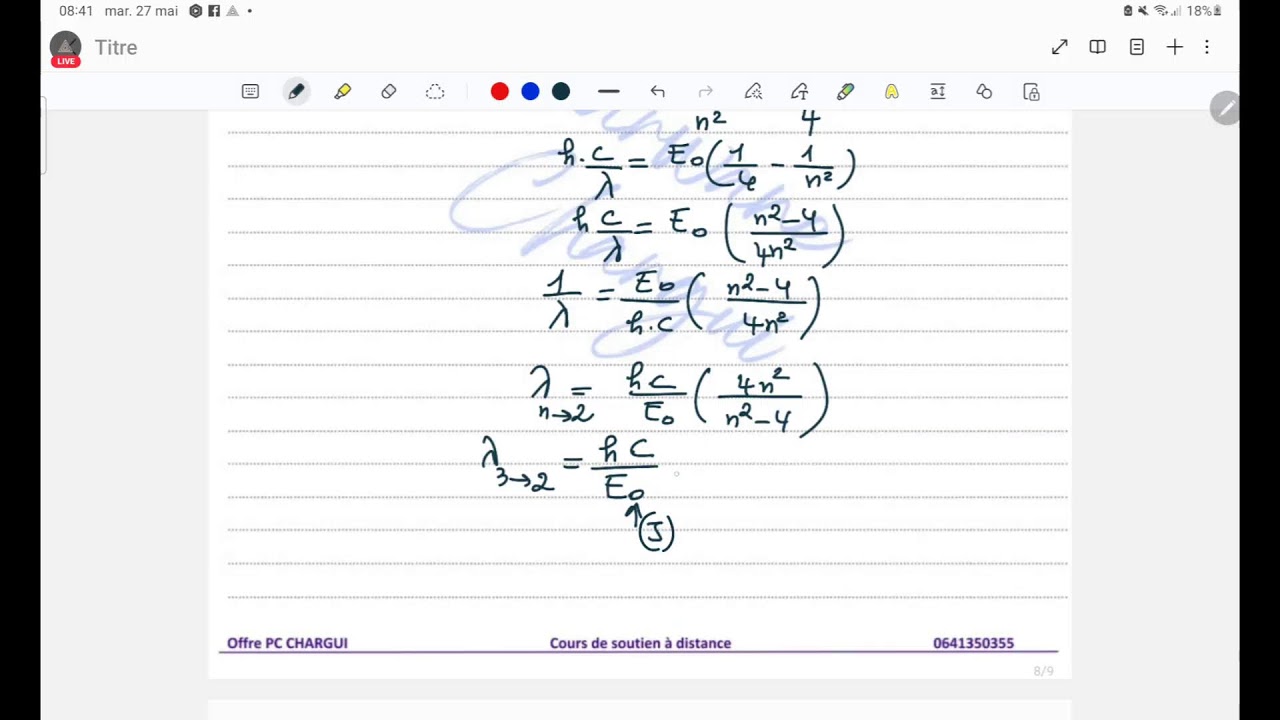 08:41 mar. 27 mai 18%
Titre
LIVE
n² 4
h.c/λ = E₀(1/4 - 1/n²)
h c/λ = E₀ (n²-4/4n²)
1/λ = E₀/h.c (n²-4/4n²)
λ n→2 = hc/E₀ (4n²/n²-4)
λ 3→2 = hc/E₀
↑(J)
Offre PC CHARGUI Cours de soutien à distance 0641350355
8/9